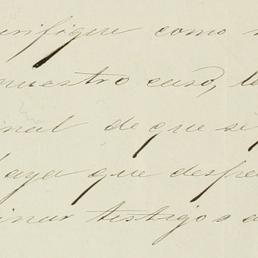 verifique como
nuestro caso, le
inal de que se
haya que despre
inar testigos a